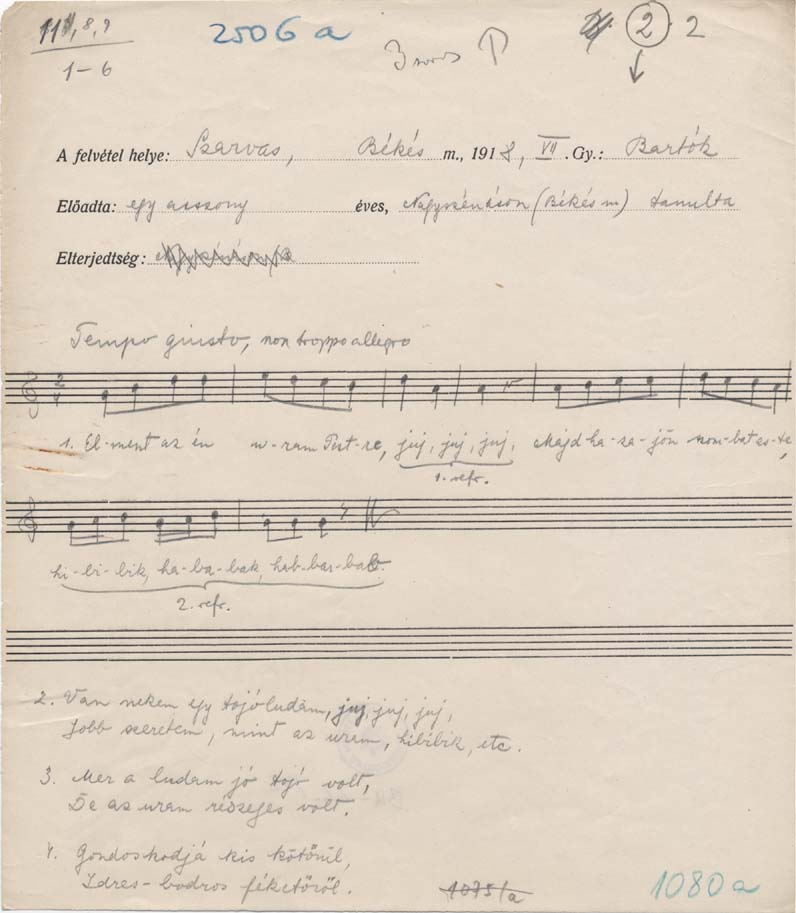 11, 8, 9
2506 a
2 . 2
1-6
3 soros
A felvétel helye: Szarvas, Békés m., 1918, VII .Gy.: Bartók
Előadta: egy asszony éves, Nagyszénáson (Békés m) tanulta
Elterjedtség:
Tempo giusto, non troppo allegro
2
4
1. El-ment az én u-ram Pest-re, juj, juj, juj, Majd ha-za-jön szom-bat es-te,
1. refr.
hi-bi-bik, ha-ba-bak, hab-bar-bab.
2. refr.
2. Van nekem egy tojóludám, juj, juj, juj,
Jobb szeretem, mint az uram, hibibik, etc.
3. Mer a ludam jó tojó volt,
De az uram részeges volt.
4. Gondoskodjá kis kötőrül,
Idres-bodros féketőről.
1075/a
1080 a